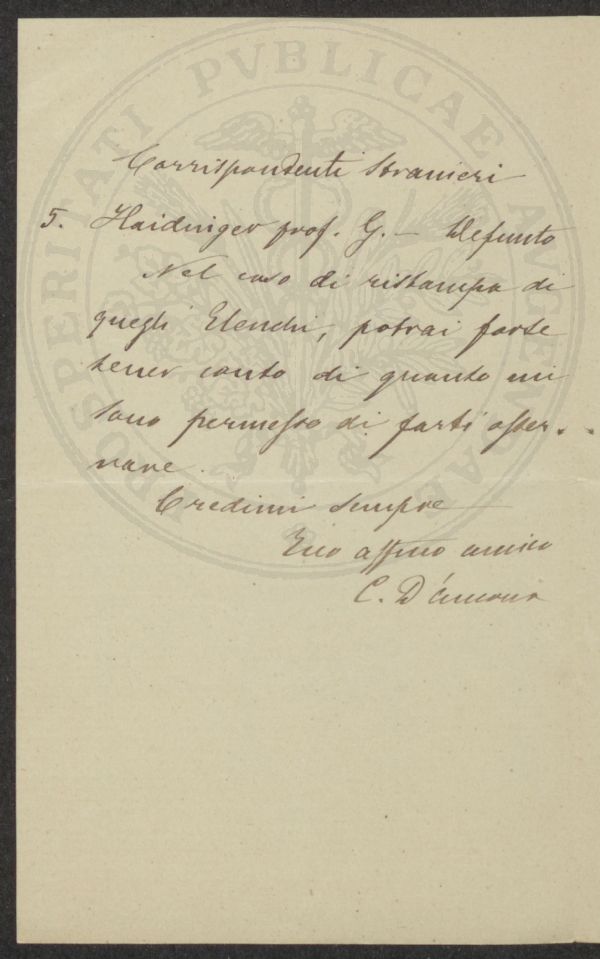 PROSPERITATI PVBLICAE AVGENDAE
Corrispondenti Stranieri
5. Haidinger prof. G. — Defunto
Nel caso di ristampa di
quegli Elenchi, potrai forse
tener conto di quanto mi
sono permesso di farti osser-
vare.
Credimi sempre
Tuo affmo amico
C. D'Ancona